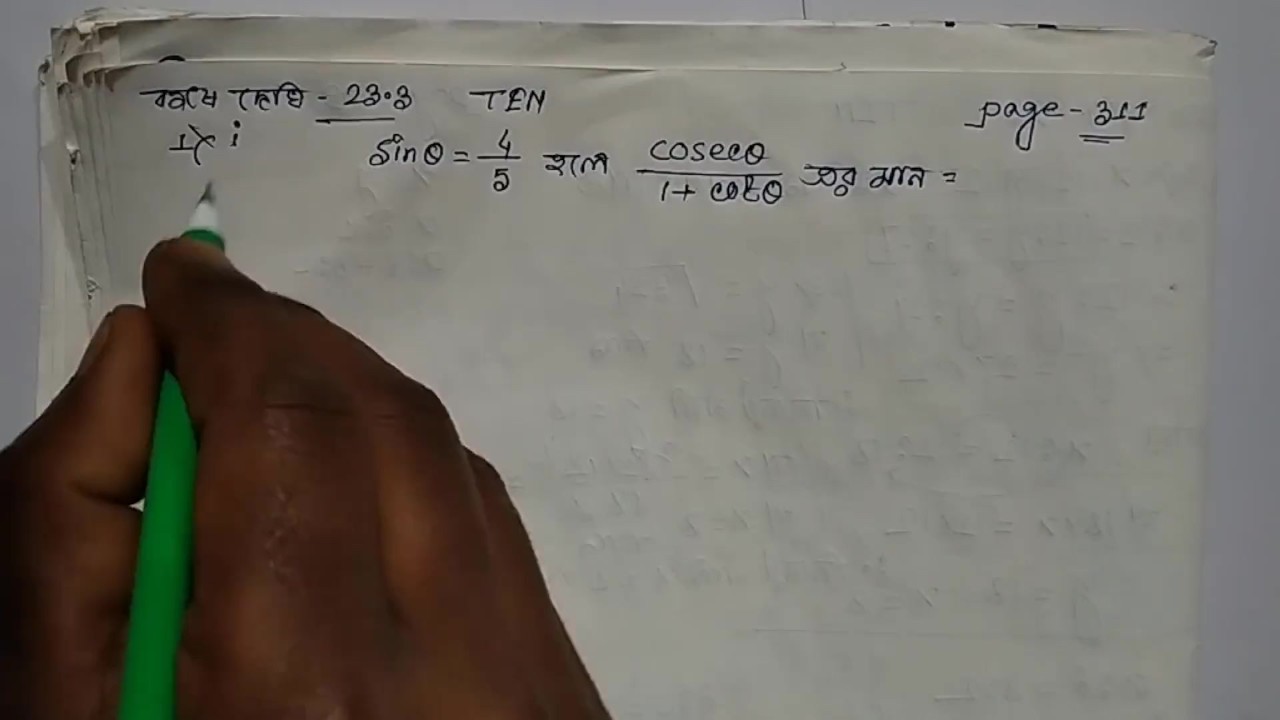 কষে দেখি - 23.3 TEN page - 311
1) i sinθ = 4/5 হলে cosecθ/1 + cotθ এর মান =